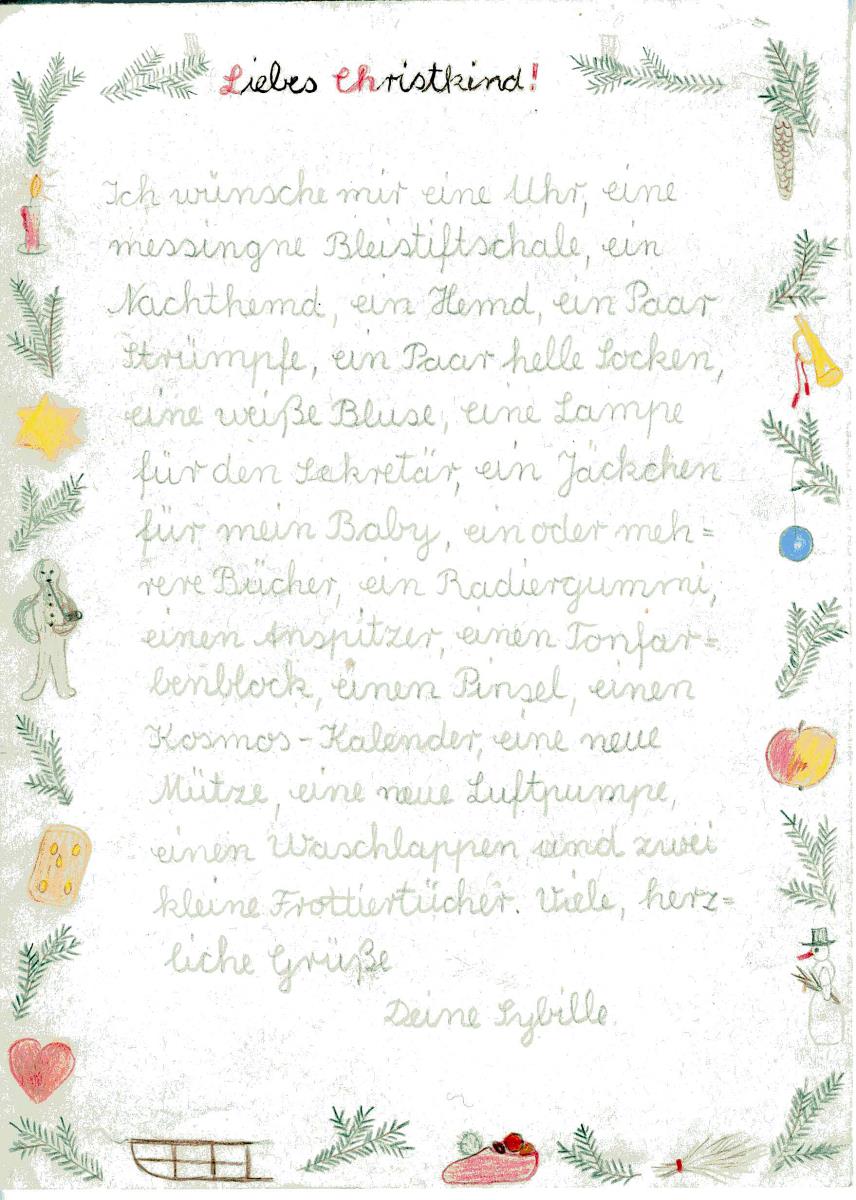 Liebes Christkind!
Ich wünsche mir eine Uhr, eine
messingne Bleistiftschale, ein
Nachthemd, ein Hemd, ein Paar
Strümpfe, ein Paar helle Socken,
eine weiße Bluse, eine Lampe
für den Sekretär, ein Jäckchen
für mein Baby, ein oder meh=
rere Bücher, ein Radiergummi,
einen Anspitzer, einen Tonfar=
benblock, einen Pinsel, einen
Kosmos-Kalender, eine neue
Mütze, eine neue Luftpumpe,
einen Waschlappen und zwei
kleine Frottiertücher. Viele, herz=
liche Grüße
Deine Sybille